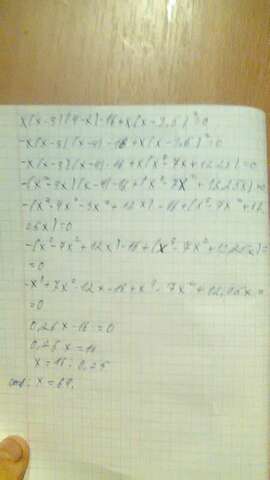 x(x-3)(4-x)-16+x(x-3,5)²=0
-x(x-3)(x-4)-16+x(x-3,5)²=0
-x(x-3)(x-4)-16+x(x²-7x+12,25)=0
-(x²-3x)(x-4)-16+(x³-7x²+12,25x)=0
-(x³-4x²-3x²+12x)-16+(x³-7x²+12,
25x)=0
-(x³-7x²+12x)-16+(x³-7x²+12,25x)=
=0
-x³+7x²-12x-16+x³-7x²+12,25x=
=0
0,25x-16=0
0,25x=16
x=16:0,25
x=64.